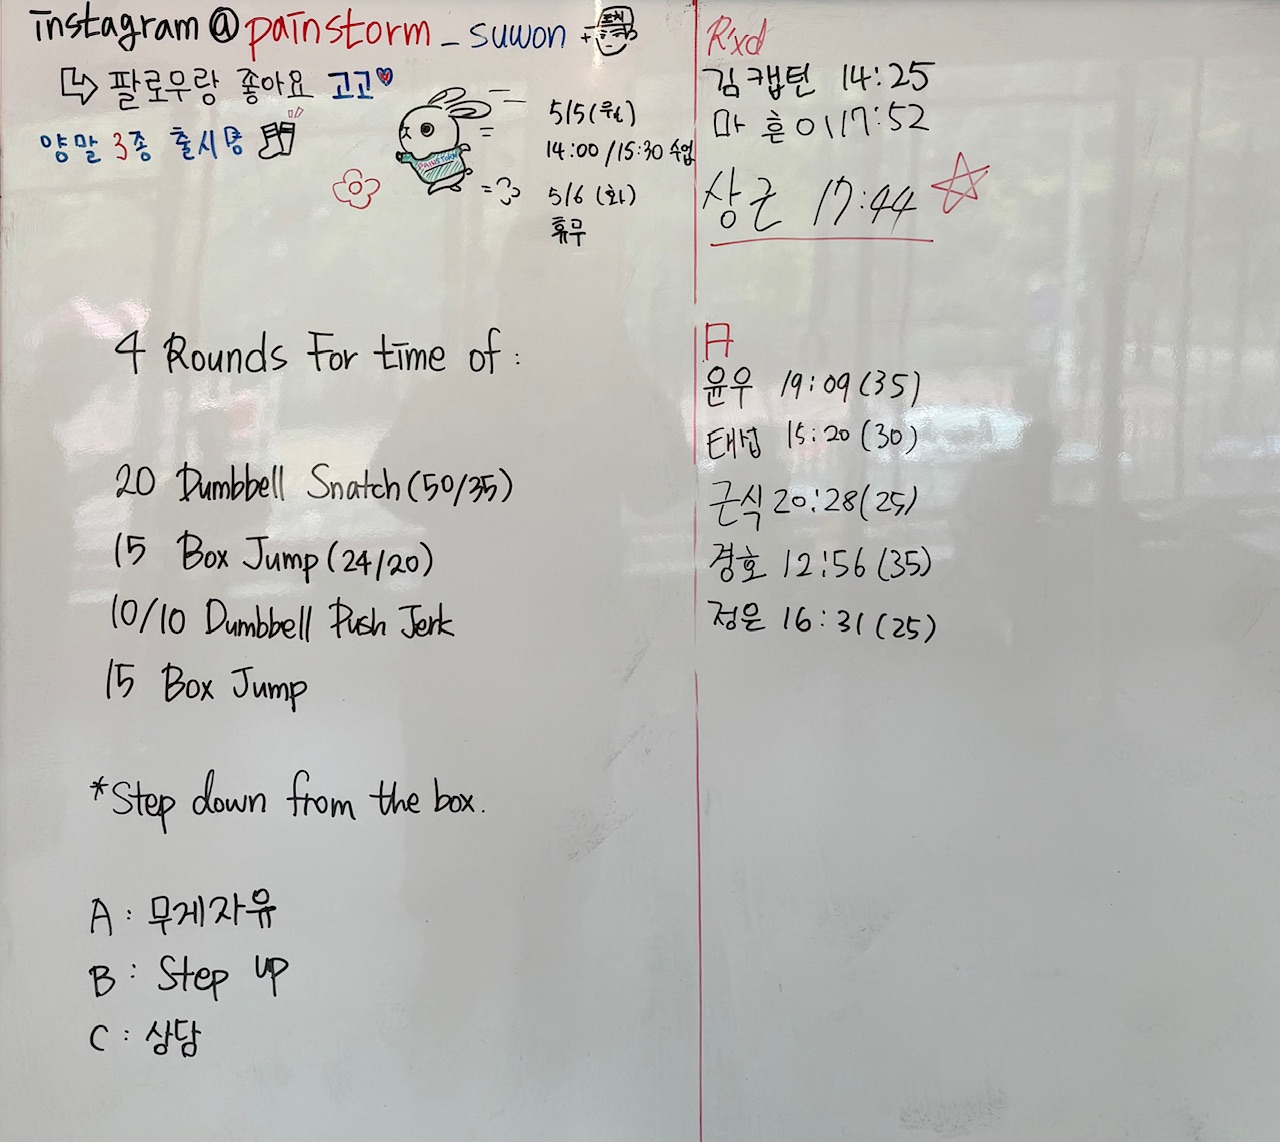 instagram @ painstorm _ suwon +
팔로우랑 좋아요 고고
양말 3종 출시명
PAINSTORM
5/5(월)
14:00/15:30 수업
5/6 (화)
휴무
4 Rounds For time of :
20 Dumbbell Snatch (50/35)
15 Box Jump (24/20)
10/10 Dumbbell Push Jerk
15 Box Jump
*Step down from the box.
A : 무게자유
B : Step up
C : 상담
R'xd
김캡틴 14:25
마흔이 17:52
상근 17:44
A
윤우 19:09 (35)
태섭 15:20 (30)
근식 20:28 (25)
경호 12:56 (35)
정은 16:31 (25)